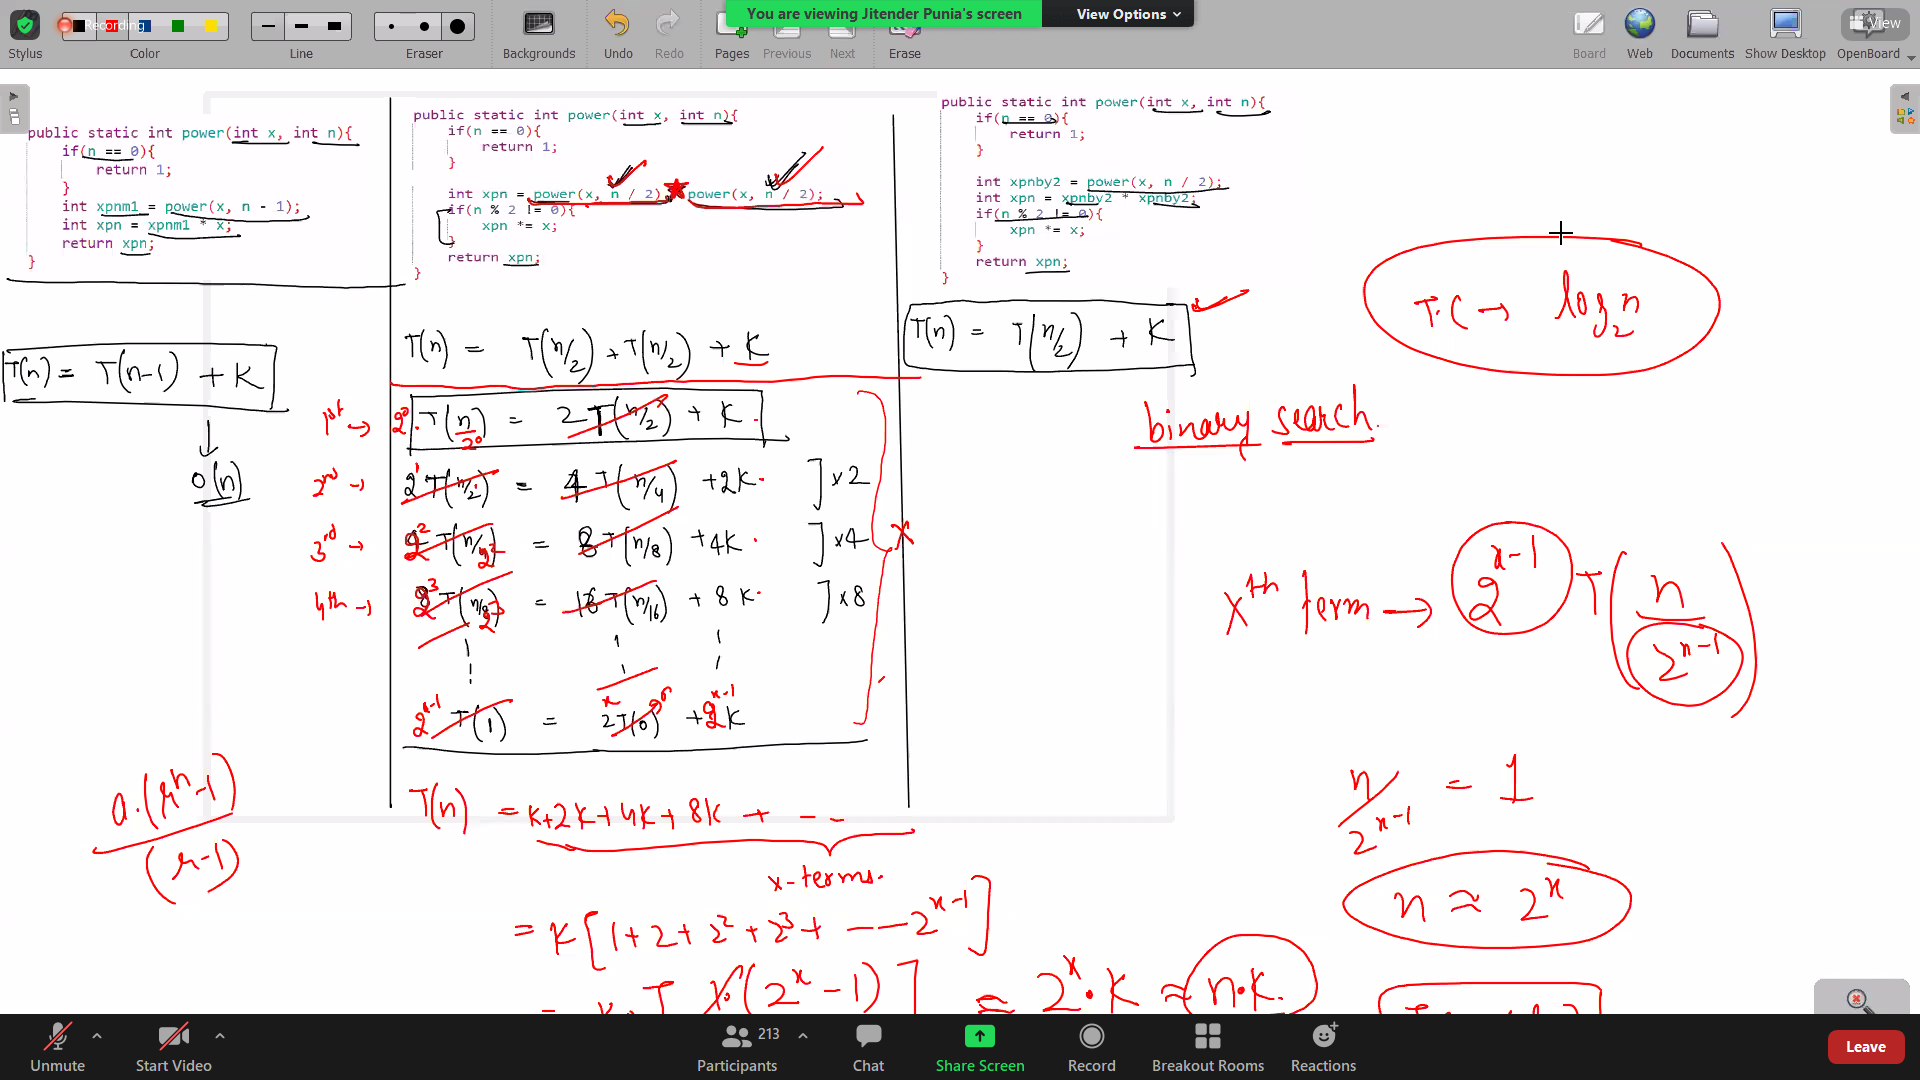 Recording
You are viewing Jitender Punia's screen
View Options
View
Stylus
Color
Line
Eraser
Backgrounds
Undo
Redo
Pages
Previous
Next
Erase
Board
Web
Documents
Show Desktop
OpenBoard
public static int power(int x, int n){
if(n == 0){
return 1;
}
int xpnm1 = power(x, n - 1);
int xpn = xpnm1 * x;
return xpn;
}
T(n) = T(n-1) + K
O(n)
public static int power(int x, int n){
if(n == 0){
return 1;
}
int xpn = power(x, n / 2) * power(x, n / 2);
if(n % 2 != 0){
xpn *= x;
}
return xpn;
}
T(n) = T(n/2) + T(n/2) + K
1st → 2^0 . T(n/2^0) = 2 T(n/2) + K .
2nd → 2^1 T(n/2) = 4 T(n/4) + 2K . ] x2
3rd → 2^2 T(n/2^2) = 8 T(n/8) + 4K . ] x4
4th → 2^3 T(n/2^3) = 16 T(n/16) + 8K . ] x8
x
2^x-1 T(1) = 2^x T(0) + 2^x-1 K
T(n) = K+2K+4K+8K + - - -
x-terms.
= K [1+2+2^2+2^3+ --- 2^x-1]
(2^x - 1) ] = 2^x . K ≈ n.K.
a.(r^n-1)
(r-1)
public static int power(int x, int n){
if(n == 0){
return 1;
}
int xpnby2 = power(x, n / 2);
int xpn = xpnby2 * xpnby2;
if(n % 2 != 0){
xpn *= x;
}
return xpn;
}
T(n) = T(n/2) + K
T.C → log2 n
binary search.
Xth term → 2^x-1 T(n/2^x-1)
n/2^x-1 = 1
n ≈ 2^x
Unmute
Start Video
Participants
213
Chat
Share Screen
Record
Breakout Rooms
Reactions
Leave